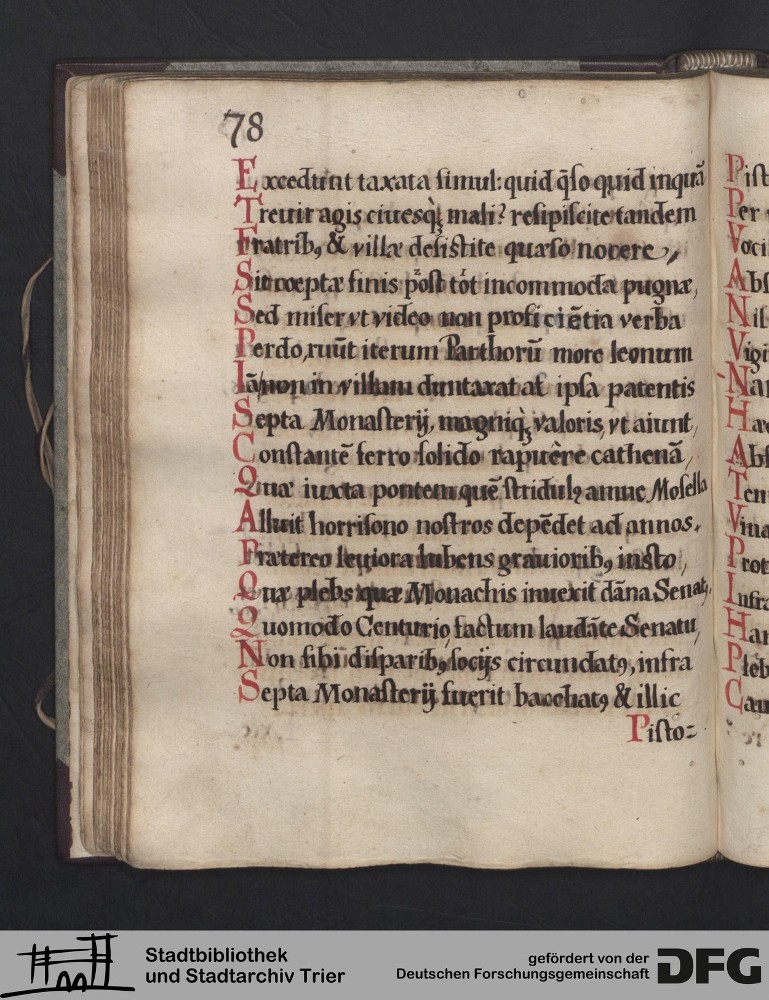 78
Excedunt taxata simul: quid q̃so quid inquã
Treuir agis ciuesq̀ꝫ mali? resipiscite tandem
Fratribꝰ & villæ desistite quæso nocere,
Sit coeptæ finis post tot incommoda pugnæ,
Sed miser vt video non proficiẽtia verba
Perdo, ruũt iterum Parthorũ more leonum
Iã non in villam duntaxat at ipsa patentis
Septa Monasterij, magniq̀ꝫ valoris, vt aiunt,
Constantẽ ferro solido rapuêre cathenã,
Quæ iuxta pontem quẽ stridulꝰ amne Mosella
Alluit horrisono nostros depẽdet ad annos.
Prætereo leuiora lubens grauioribꝰ insto,
Quæ plebs quæ Monachis inuexit dãna Senatꝰ,
Quomodo Centurio, factum laudãte Senatu,
Non sibi disparibꝰ, socijs circundatꝰ, infra
Septa Monasterij fuerit bacchatꝰ & illic
Pisto=
Pist
Per
Voci
Abs
Nil
Vigi
Nan
Hæc
Abs
Ten
Vina
Prot
Infra
Han
Pleb
Cau
Stadtbibliothek
und Stadtarchiv Trier
gefördert von der
Deutschen Forschungsgemeinschaft
DFG